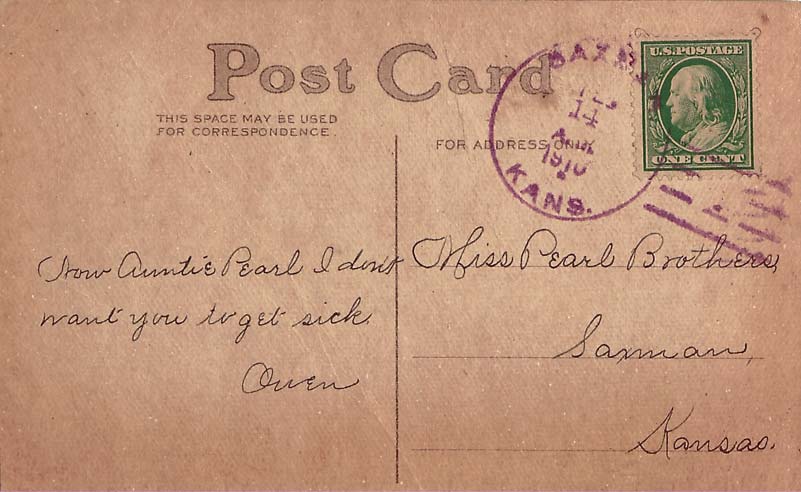 Post Card
THIS SPACE MAY BE USED
FOR CORRESPONDENCE.
FOR ADDRESS ONLY
SAXMAN
14
1910
KANS.
U.S. POSTAGE
ONE CENT
Now Auntie Pearl I don't
want you to get sick.
Owen
Miss Pearl Brothers,
Saxman,
Kansas.